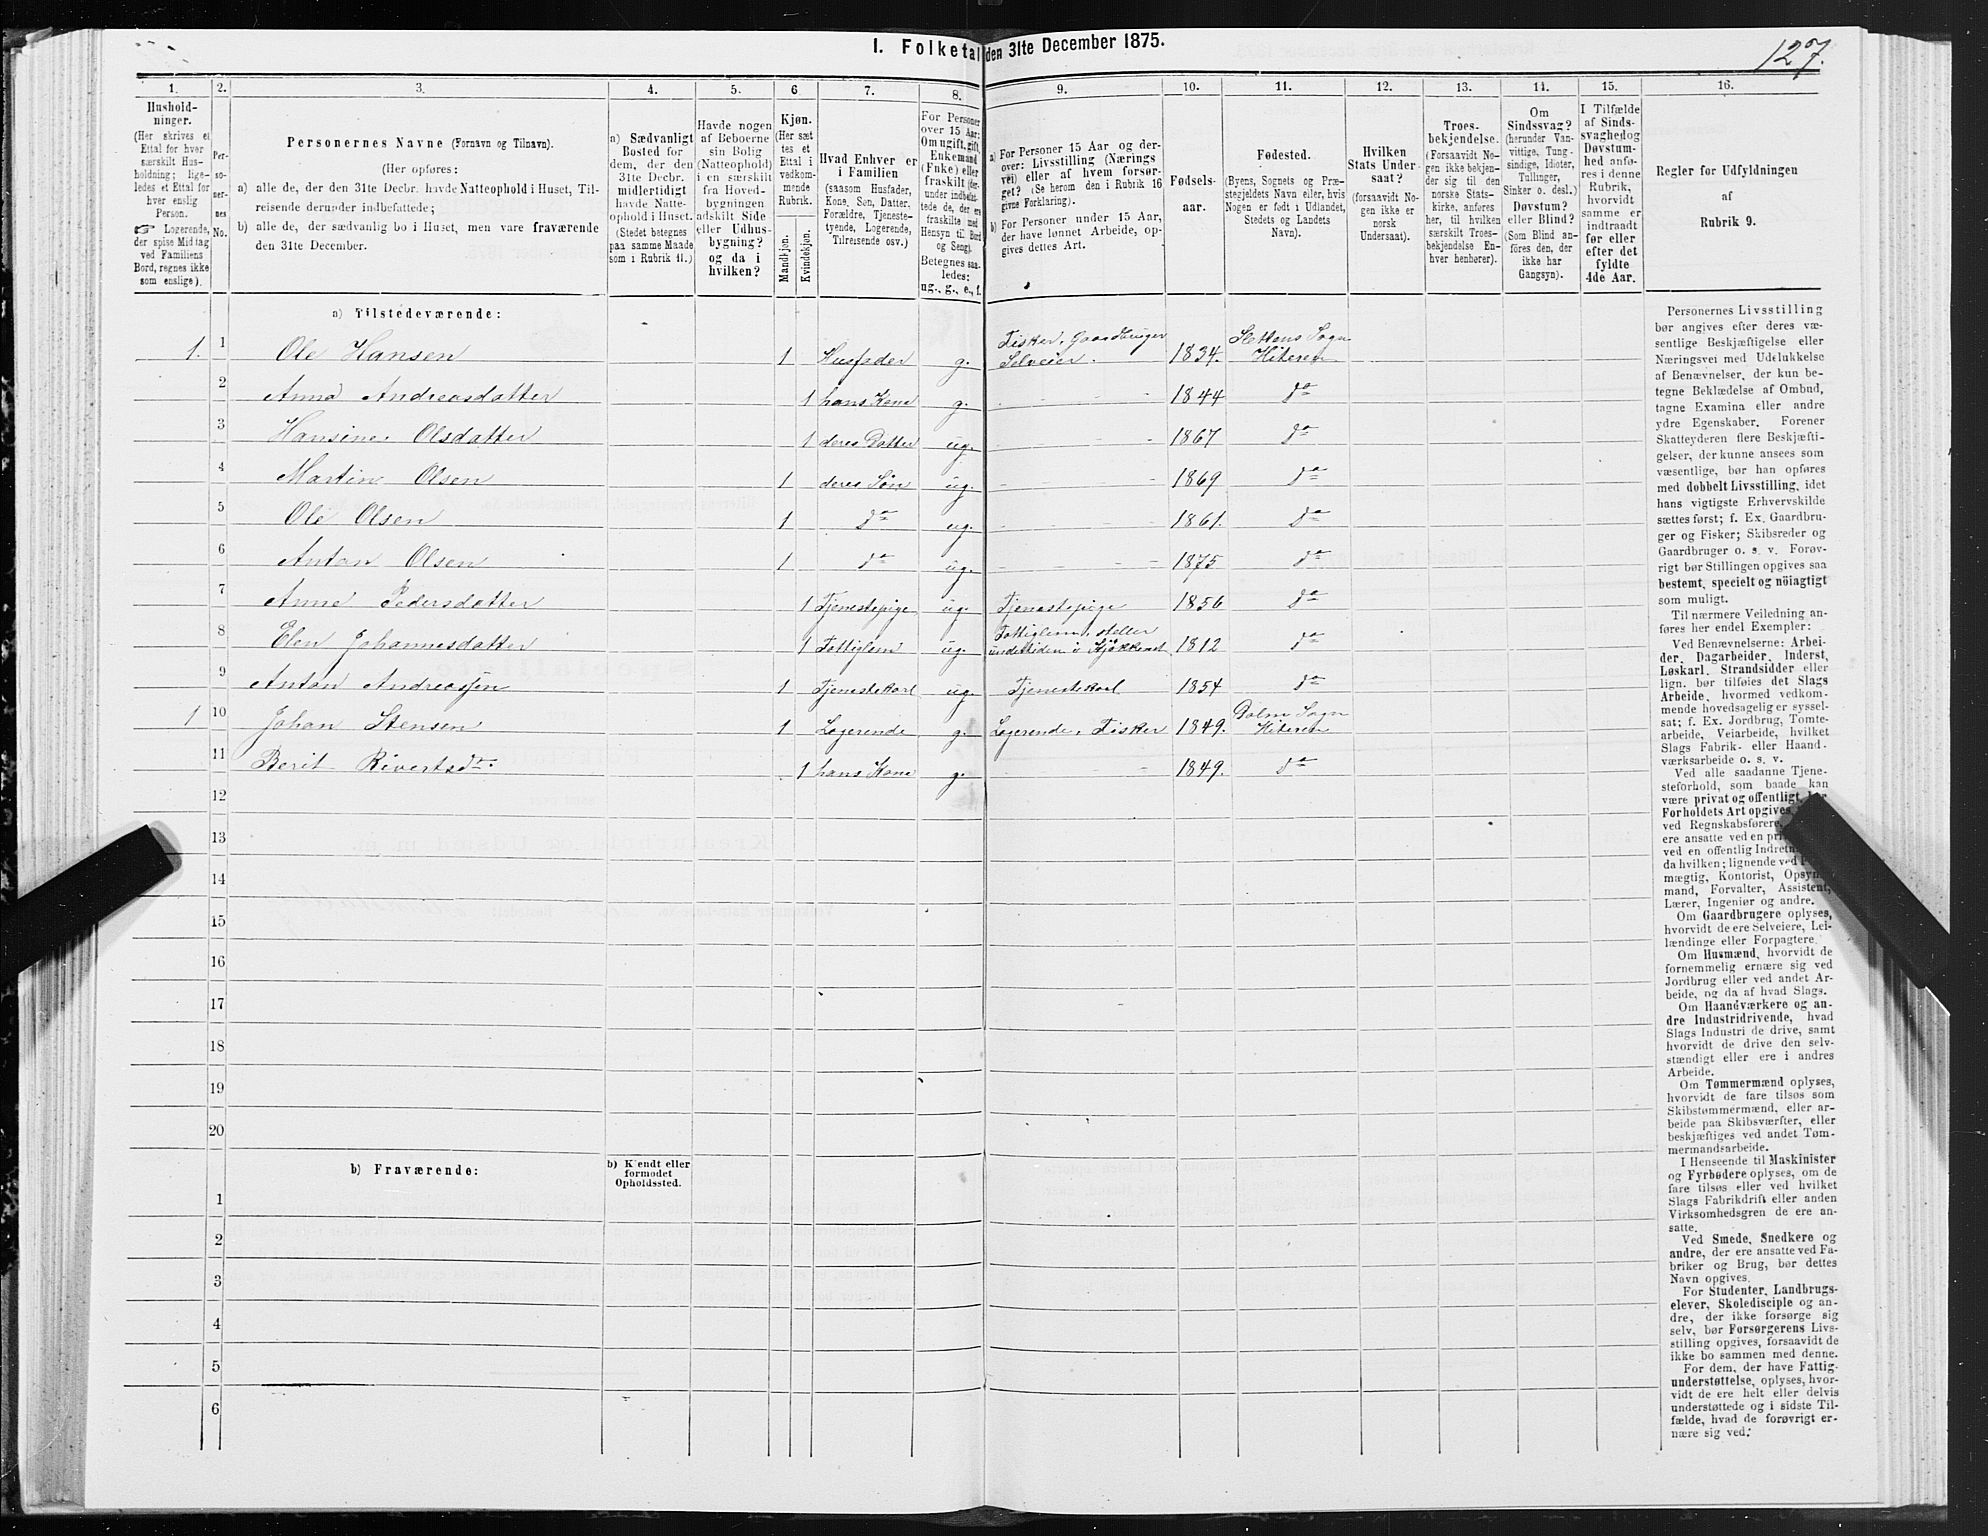 I. Folketal den 31te December 1875.
127.
1. 2. 3. 4. 5. 6 7. 8. 9. 10. 11. 12. 13. 14. 15. 16.
Hushold-
ninger.
(Her skrives et
Ettal for hver
særskilt Hus-
holdning; lige-
ledes et Ettal for
hver enslig
Person.
☞ Logerende,
der spise Middag
ved Familiens
Bord, regnes ikke
som enslige).
Per-
so-
ner-
nes
No.
Personernes Navne (Fornavn og Tilnavn).
(Her opføres:
a) alle de, der den 31te Decbr. havde Natteophold i Huset, Til-
reisende derunder indbefattede;
b) alle de, der sædvanlig bo i Huset, men vare fraværende
den 31te December.
a) Sædvanligt
Bosted for
dem, der den
31te Decbr.
midlertidigt
havde Natte-
ophold i Huset.
(Stedet betegnes
paa samme Maade
som i Rubrik 11.)
Havde nogen
af Beboerne
sin Bolig
(Natteophold)
i en særskilt
fra Hoved-
bygningen
adskilt Side
eller Udhus-
bygning?
og da i
hvilken?
Kjøn.
(Her sæt
tes et
Ettal i
vedkom-
mende
Rubrik.
Mandkjøn.
Kvindekjøn.
Hvad Enhver er
i Familien
(saasom Husfader,
Kone, Søn, Datter,
Forældre, Tjeneste-
tyende, Logerende,
Tilreisende osv.)
For Personer
over 15 Aar:
Om ugift, gift,
Enkemand
(Enke) eller
fraskilt (der-
under indbefat-
tede de, der ere
fraskilte med
Hensyn til Bord
og Seng).
Betegnes saa-
ledes:
ug., g., e., f.
a) For Personer 15 Aar og der-
over: Livsstilling (Nærings
vei) eller af hvem forsør-
get? (Se herom den i Rubrik 16
givne Forklaring).
b) For Personer under 15 Aar,
der have lønnet Arbeide, op-
gives dettes Art.
Fødsels-
aar.
Fødested.
(Byens, Sognets og Præ-
stegjeldets Navn eller, hvis
Nogen er født i Udlandet,
Stedets og Landets
Navn).
Hvilken
Stats Under-
saat?
(forsaavidt No-
gen ikke er
norsk
Undersaat).
Troes-
bekjendelse.
(Forsaavidt No-
gen ikke bekjen-
der sig til den
norske Stats-
kirke, anføres
her, til hvilken
særskilt Troes-
bekjendelse En-
hver henhører).
Om
Sindssvag?
(herunder Van-
vittige, Tung-
sindige, Idioter,
Tullinger,
Sinker o. desl.)
Døvstum?
eller Blind?
(Som Blind an-
føres den, der
ikke har
Gangsyn).
I Tilfælde
af Sinds-
svaghed og
Døvstum-
hed anfø-
res i denne
Rubrik,
hvorvidt
samme er
indtraadt
før eller
efter det
fyldte
4de Aar.
Regler for Udfyldningen
af
Rubrik 9.
a) Tilstedeværende:
1. 1 Ole Hansen 1 Husfader g. Fisker, Gaardbruger Selveier. 1834. Slettens Sogn Hiteren
2 Anna Andreasdatter 1 hans Kone g. 1844 do
3 Hansine Olsdatter 1 deres Datter ug. 1867 do
4 Martin Olsen 1 deres Søn ug. 1869 do
5 Ole Olsen 1 do ug. 1861. do
6 Anton Olsen 1 do ug. 1875 do
7 Anne Pedersdatter 1 Tjenestepige ug. Tjenestepige 1856 do
8 Elen Johannesdatter 1 Fattiglem ug. Fattiglem, steller undertiden i Kjøkkenet 1812 do
9 Anton Andreassen 1 Tjenestekarl ug. Tjenestekarl 1854 do
1 10 Johan Stensen 1 Logerende g. Logerende, Fisker 1849. Dolm Sogn Hiteren
11 Berit Rivertsdt. 1 hans Kone g. 1849. do
12
13
14
15
16
17
18
19
20
b) Fraværende:
b) Kjendt eller
formodet
Opholdssted.
1
2
3
4
5
6
Personernes Livsstilling
bør angives efter deres væ-
sentlige Beskjæftigelse eller
Næringsvei med Udelukkelse
af Benævnelser, der kun be-
tegne Beklædelse af Ombud,
tagne Examina eller andre
ydre Egenskaber. Forener
Skatteyderen flere Beskjæfti-
gelser, der kunne ansees som
væsentlige, bør han opføres
med dobbelt Livsstilling, idet
hans vigtigste Erhvervskilde
sættes først; f. Ex. Gaardbru-
ger og Fisker; Skibsreder og
Gaardbruger o. s. v. Forøv-
rigt bør Stillingen opgives saa
bestemt, specielt og nøiagtigt
som muligt.
Til nærmere Veiledning an-
føres her endel Exempler:
Ved Benævnelserne: Arbei-
der, Dagarbeider, Inderst,
Løskarl, Strandsidder eller
lign. bør tilføies det Slags
Arbeide, hvormed vedkom-
mende hovedsagelig er syssel-
sat; f. Ex. Jordbrug, Tomte-
arbeide, Veiarbeide, hvilket
Slags Fabrik- eller Haand-
værksarbeide o. s. v.
Ved alle saadanne Tjene-
steforhold, som baade kan
være privat og offentligt, bør
Forholdets Art opgives,
ved Regnskabsførere,
ere ansatte ved en
ved en offentlig Indretn
da hvilken; lignende ved
mægtig, Kontorist, Opsyn
mand, Forvalter, Assistent,
Lærer, Ingeniør og andre.
Om Gaardbrugere oplyses,
hvorvidt de ere Selveiere, Lei-
lændinge eller Forpagtere.
Om Husmænd, hvorvidt de
fornemmelig ernære sig ved
Jordbrug eller ved andet Ar-
beide, og da af hvad Slags.
Om Haandværkere og an-
dre Industridrivende, hvad
Slags Industri de drive, samt
hvorvidt de drive den selv-
stændigt eller ere i andres
Arbeide.
Om Tømmermænd oplyses,
hvorvidt de fare tilsøs som
Skibstømmermænd, eller ar-
beide paa Skibsværfter, eller
beskjæftiges ved andet Tøm-
mermandsarbeide.
I Henseende til Maskinister
og Fyrbødere oplyses, om de
fare tilsøs eller ved hvilket
Slags Fabrikdrift eller anden
Virksomhedsgren de ere an-
satte.
Ved Smede, Snedkere og
andre, der ere ansatte ved Fa-
briker og Brug, bør dettes
Navn opgives.
For Studenter, Landbrugs-
elever, Skoledisciple og an-
dre, der ikke forsørge sig
selv, bør Forsørgerens Livs-
stilling opgives, forsaavidt de
ikke bo sammen med denne.
For dem, der have Fattig-
understøttelse, oplyses, hvor-
vidt de ere helt eller delvis
understøttede og i sidste Til-
fælde, hvad de forøvrigt er-
nære sig ved.